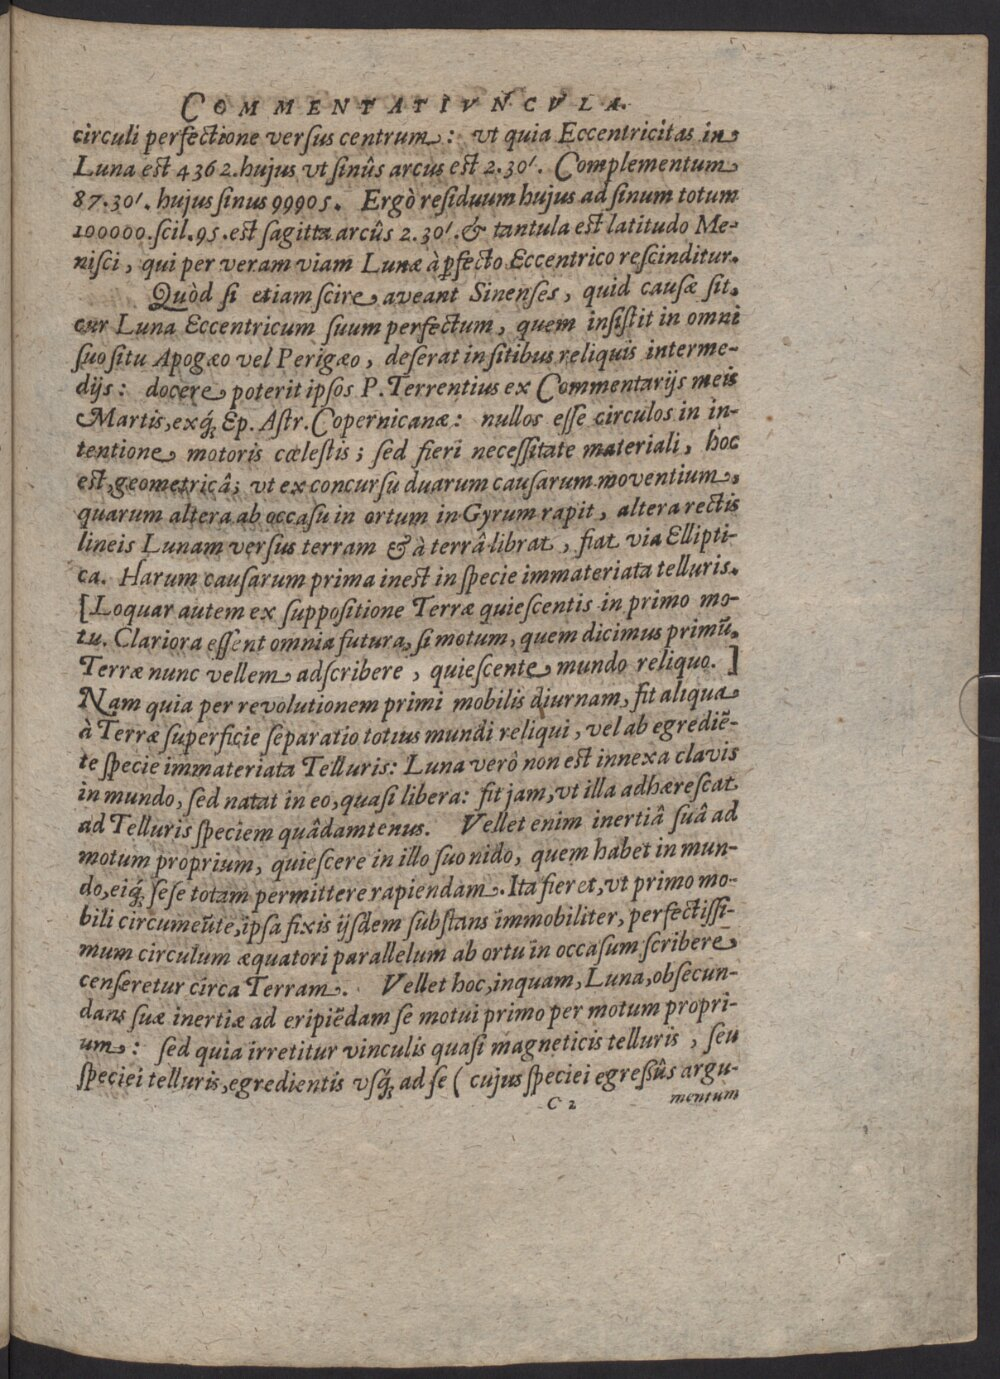 COMMENTATIVNCVLA.
circuli perfectione versus centrum: vt quia Eccentricitas in
Luna est 4362. hujus vt sinûs arcus est 2.30'. Complementum
87.30'. hujus sinus 99905. Ergò residuum hujus ad sinum totum
100000. scil. 95. est sagitta arcûs 2.30'. & tantula est latitudo Me-
nisci, qui per veram viam Lunæ à ꝑfecto Eccentrico rescinditur.
Quòd si etiam scire aveant Sinenses, quid causæ sit,
cur Luna Eccentricum suum perfectum, quem insistit in omni
suo situ Apogæo vel Perigæo, deserat in sitibus reliquis interme-
dijs: docere poterit ipsos P. Terrentius ex Commentarijs meis
Martis, exq́; Ep. Astr. Copernicanæ: nullos esse circulos in in-
tentione motoris cœlestis; sed fieri necessitate materiali, hoc
est, geometricâ; vt ex concursu duarum causarum moventium,
quarum altera ab occasu in ortum in Gyrum rapit, altera rectis
lineis Lunam versus terram & à terrâ librat, fiat via Ellipti-
ca. Harum causarum prima inest in specie immateriata telluris.
[Loquar autem ex suppositione Terræ quiescentis in primo mo-
tu. Clariora essent omnia futura, si motum, quem dicimus primũ,
Terræ nunc vellem adscribere, quiescente mundo reliquo.]
Nam quia per revolutionem primi mobilis diurnam, fit aliqua
à Terræ superficie separatio totius mundi reliqui, vel ab egrediẽ-
te specie immateriata Telluris: Luna verò non est innexa clavis
in mundo, sed natat in eo, quasi libera: fit jam, vt illa adhærescat
ad Telluris speciem quâdamtenus. Vellet enim inertiâ suâ ad
motum proprium, quiescere in illo suo nido, quem habet in mun-
do, eiq́; sese totam permittere rapiendam. Ita fieret, vt primo mo-
bili circumeũte, ipsa fixis ijsdem substans immobiliter, perfectissi-
mum circulum æquatori parallelum ab ortu in occasum scribere
censeretur circa Terram. Vellet hoc, inquam, Luna, obsecun-
dans suæ inertiæ ad eripiẽdam se motui primo per motum propri-
um: sed quia irretitur vinculis quasi magneticis telluris, seu
speciei telluris, egredientis vsq́; ad se (cujus speciei egressûs argu-
C 2 mentum